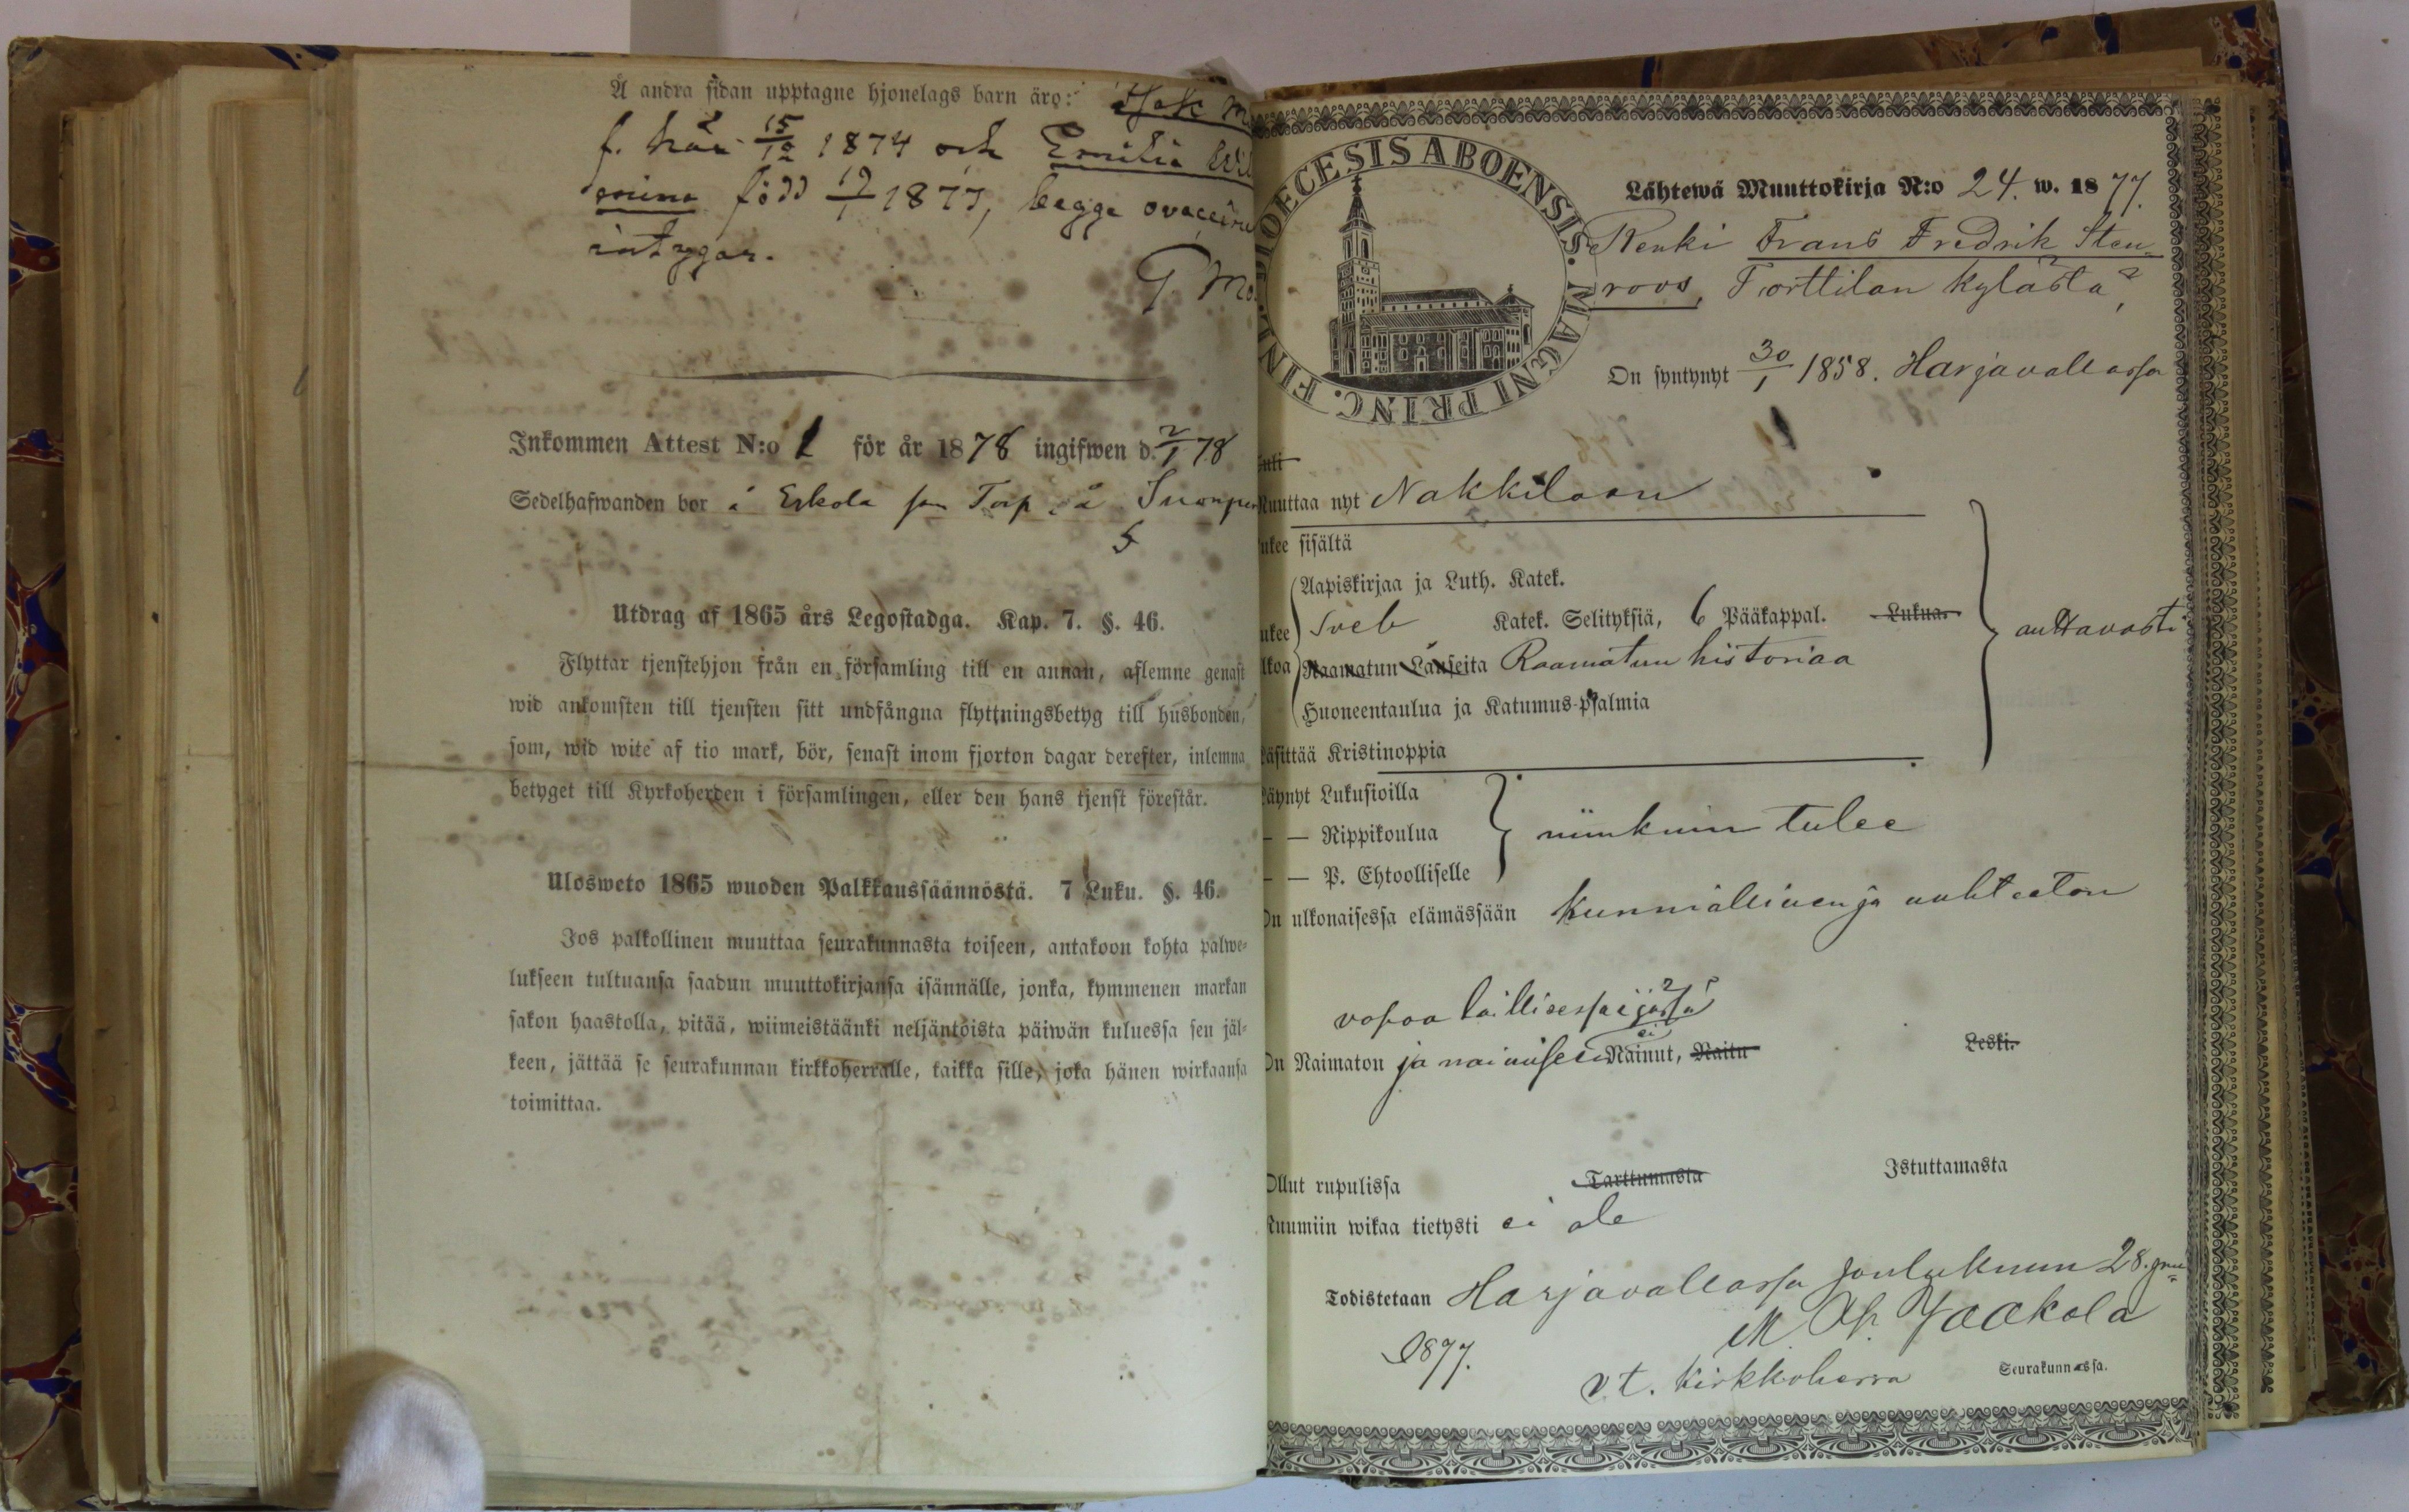 Å andra sidan upptagne hjonelags barn äro:
f. här 15/12 1874 och Emilia Wil
mina född 19/1 1877, begge
intygar.
G. Mo
Inkommen Attest N:o 1 för år 1878 ingifwen d. 2/1 78
Sedelhafwanden bor å Eskola Torp å
Utdrag af 1865 års Legostadga. Kap. 7. §. 46.
Flyttar tjenstehjon från en församling till en annan, aflemne genast
wid ankomsten till tjensten sitt undfångna flyttningsbetyg till husbonden,
som, wid wite af tio mark, bör, senast inom fjorton dagar derefter, inlemna
betyget till Kyrkoherden i församlingen, eller den hans tjenst förestår.
Ulosweto 1865 wuoden Palkkaussäännöstä. 7 Luku. §. 46.
Jos palkollinen muuttaa seurakunnasta toiseen, antakoon kohta palwe-
lukseen tultuansa saadun muuttokirjansa isännälle, jonka, kymmenen markan
sakon haastolla, pitää, wiimeistäänki neljäntöista päiwän kuluessa sen jäl-
keen, jättää se seurakunnan kirkkoherralle, taikka sille, joka hänen wirkaansa
toimittaa.
DIOECESIS ABOENSIS. MAGNI PRINC. FINL.
Lähtewä Muuttokirja N:o 24. w. 1877.
Renki Frans Fredrik Sten-
roos, Torttilan kylästä,
On syntynyt 30/1 1858. Harjavallassa
uuttaa nyt Nakkilaan
ukee sisältä
Aapiskirjaa ja Luth. Katek.
ukee Sveb Katek. Selityksiä, 6 Pääkappal. Lukua. auttavasti
lkoa Raamatun Lauseita Raamatun historiaa
Huoneentaulua ja Katumus-psalmia
äsittää Kristinoppia
äynyt Lukusioilla
— — Rippikoulua niinkuin tulee
— — P. Ehtoolliselle
On ulkonaisessa elämässään kunniallinen ja nuhteeton
vapaa laillisessa ijässä
ei
On Naimaton ja naimiseen Nainut, Naitu Leski.
Ollut rupulissa Tarttumasta Istuttamasta
Ruumiin wikaa tietysti ei ole
Todistetaan Harjavallassa Joulukuun 28. pnä
1877. M. Jaakola
v.t. Kirkkoherra Seurakunnassa.